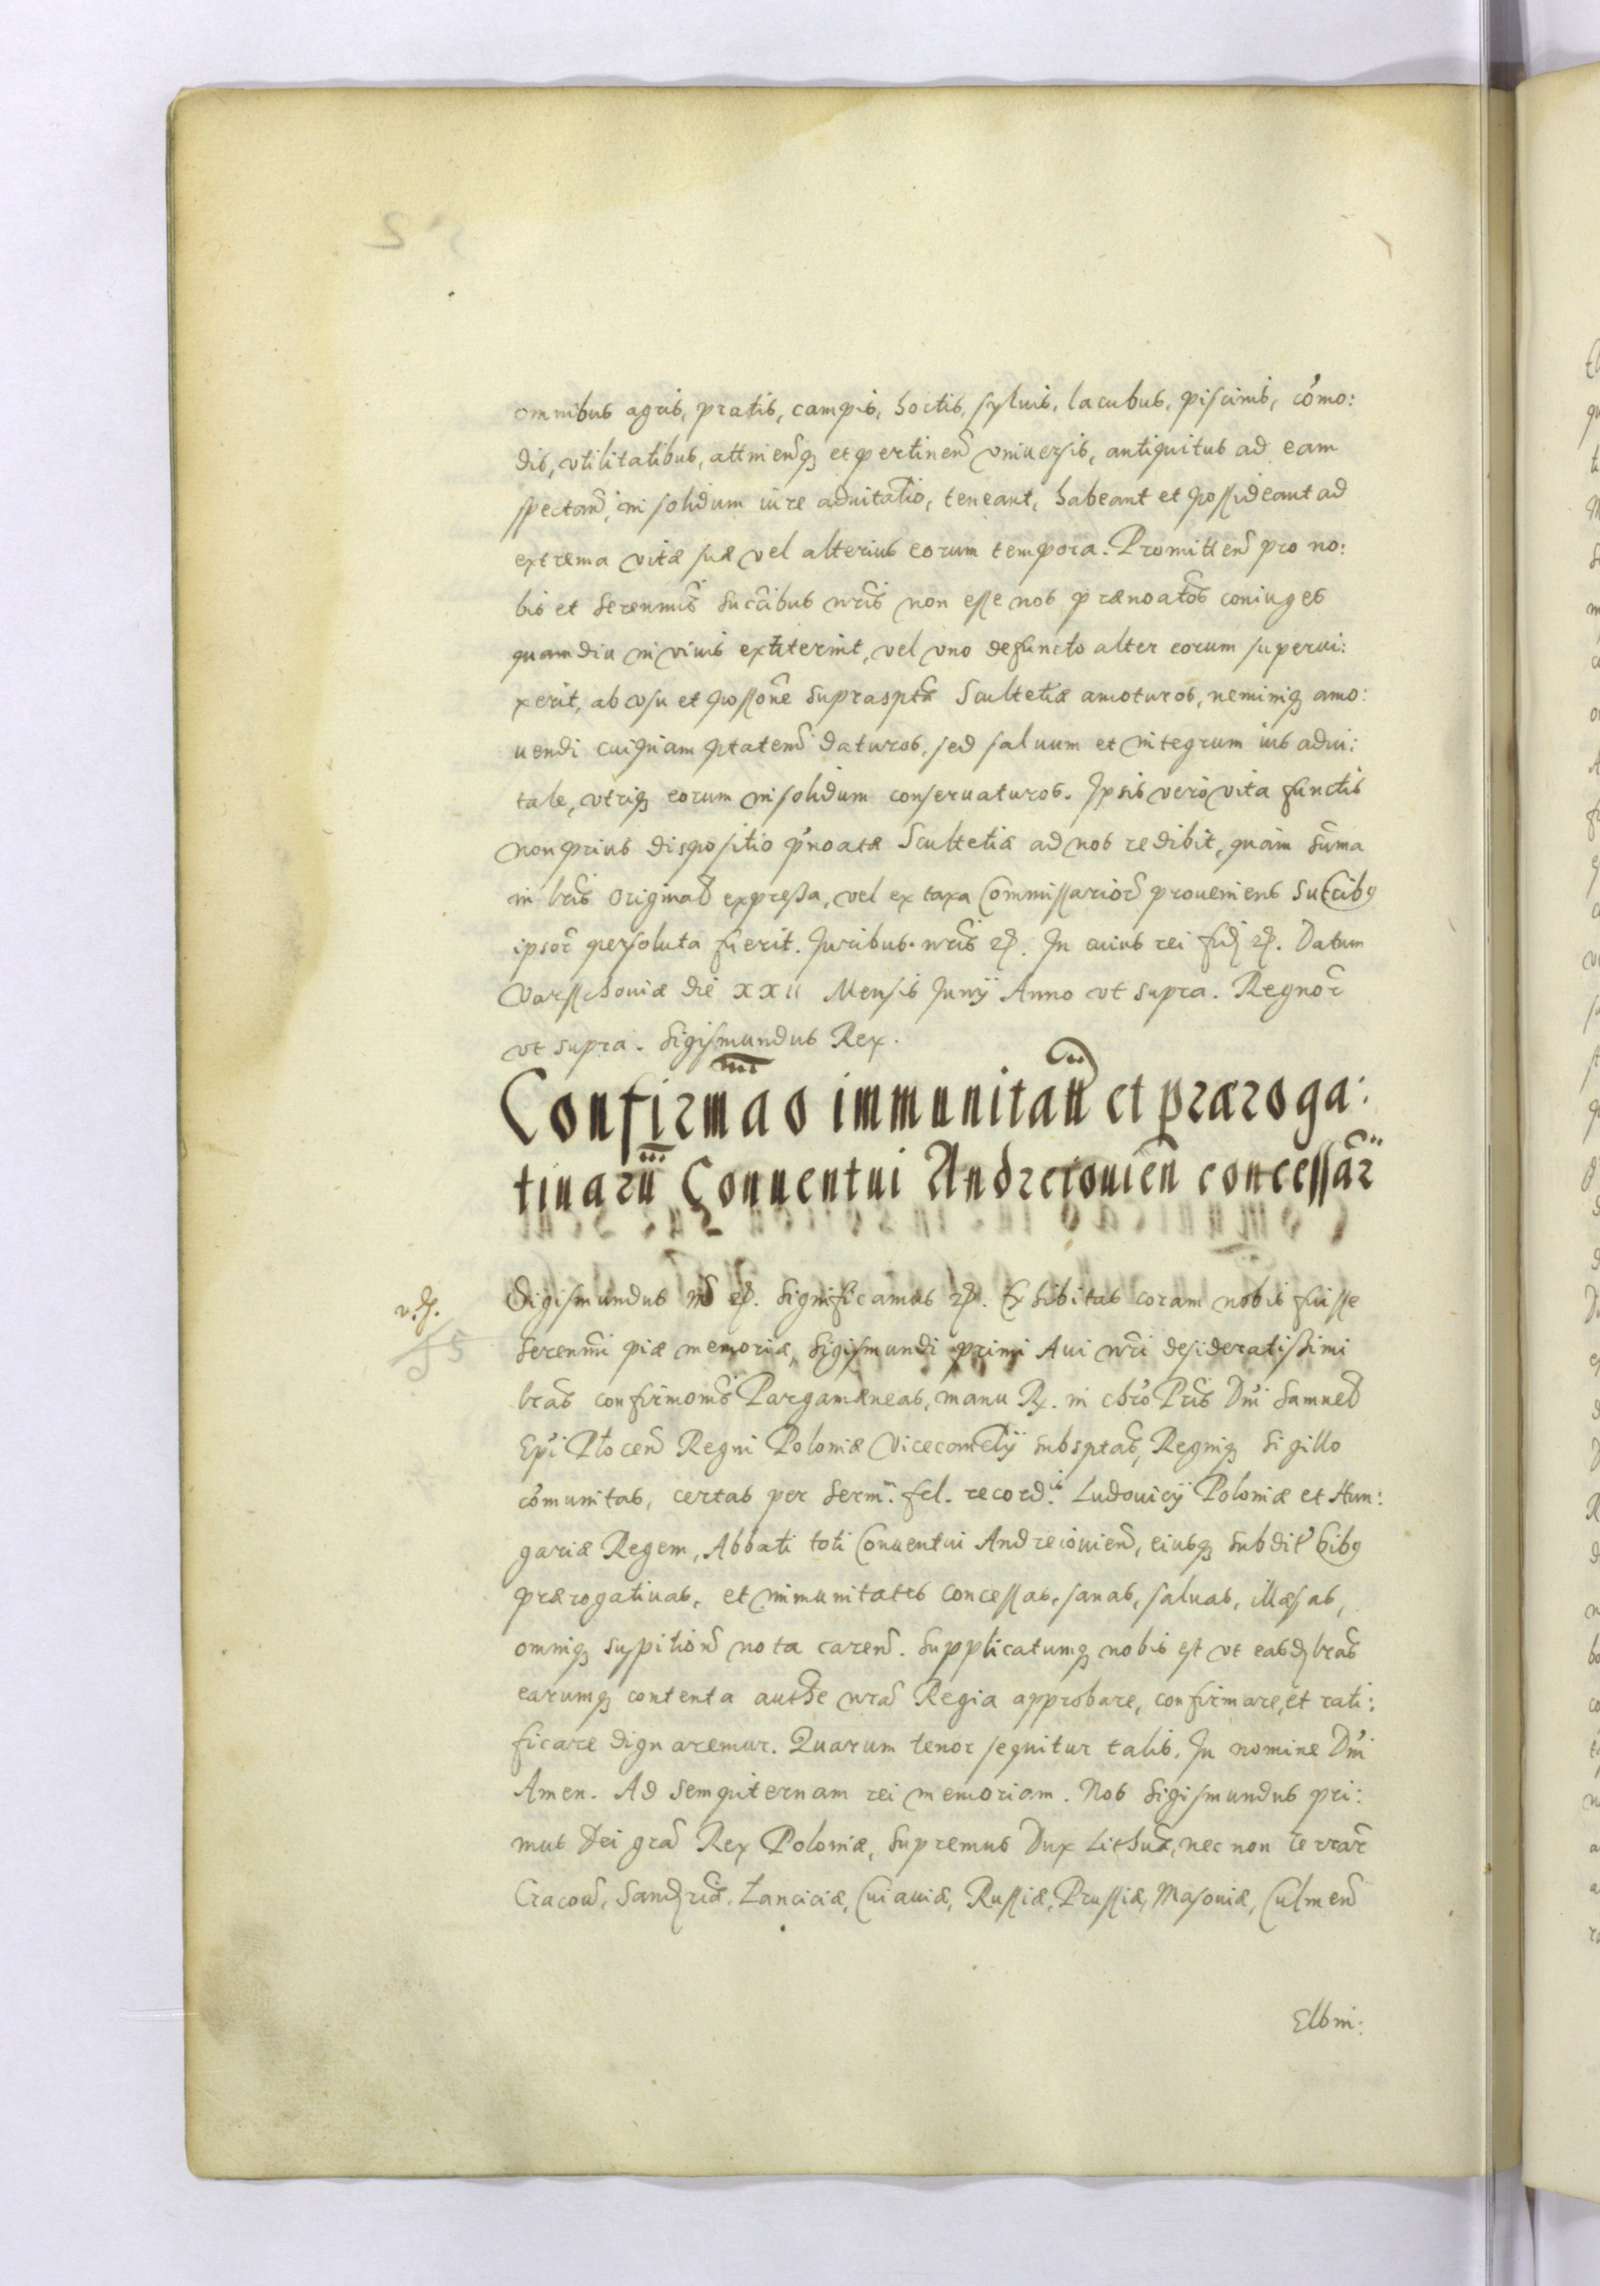 omnibus agris, pratis, campis, hortis, syluis, lacubus, piscinis, cõmo:
dis, vtilitatibus, attinenq₃ et pertinen vniuersis, antiquitus ad eam
spectan, in solidum iure aduitalio, teneant, habeant et possideant ad
extrema vitæ suæ vel alterius eorum tempora. Promitten pro no:
bis et serenmis succibus nris non esse nos prænoatos coniuges
quamdiu in viuis extiterint, vel vno defuncto alter eorum superui:
xerit, ab vsu et possone suprasptæ Scultetiæ amoturos, neminiq₃ amo:
uendi cuiquam ptatem daturos, sed saluum et integrum ius adui:
tale, vtriq₃ eorum in solidum conseruaturos. Ipsis vero vita functis
non prius dispositio p̃noatæ Scultetiæ ad nos redibit, quam suma
in lris original expressa, vel ex taxa Commissarior proueniens succibq
ipsor persoluta fuerit. Juribus nris ꝛc. In cuius rei fid ꝛc. Datum
Varsschouiæ die xxii Mensis Junÿ Anno vt supra. Regnor
vt supra. Sigismundus Rex.
Confirmao immunitan et præroga:
tiuaru Conuentui Andreiouien concessar
Sigismundus ꝛc. Significamus ꝛc. Exhibitas coram nobis fuisse
55
serenmi piæ memoriæ, Sigismundi primi Aui nri desideratissimi
lras confirmonis Pargamæneas, manu R. in chro Pris Dni Samuel
Epi Plocen Regni Poloniæ Vicecancelÿ subsptas, Regniq₃ sigillo
cõmunitas, certas per serm. fel. record. Ludouicÿ Poloniæ et Hun:
gariæ Regem, Abbati toti Conuentui Andreiouien, eiusq₃ subdit bibq
prærogatiuas, et immunitates concessas, sanas, saluas, illæsas,
omniq₃ suspition nota caren. Supplicatumq₃ nobis est vt easd lras
earumq₃ contenta authe nra Regia approbare, confirmare, et rati:
ficare dignaremur. Quarum tenor sequitur talis. In nomine Dni
Amen. Ad sempiternam rei memoriam. Nos Sigismundus pri:
mus Dei gra Rex Poloniæ, Supremus Dux Lithuæ, nec non terrar
Cracou, Sandriæ. Lanciciæ, Cuiauiæ, Russiæ, Prussiæ, Masouiæ, Culmen
Elbin: